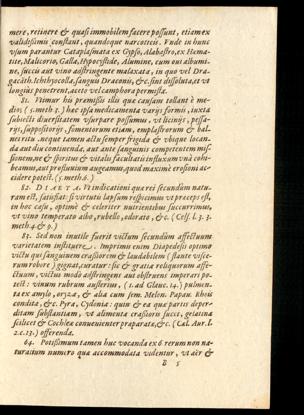 mere, retinere & quasi immobilem facere possunt, etiam ex
validissimis constant, quandoque narcoticis. Vnde in hunc
vsum parantur Cataplasmata ex Gypso, Alabastro, ex Hema-
tite, Malicorio, Galla, Hypocystide, Alumine, cum oui albumi-
ne, succis aut vino adstringente malaxata, in quo vel Dra-
gacāth. Ichthyocolla, sanguis Draconis, &c. sint dissoluta, et vt
longius penetrent, aceto vel camphora permista.
81. Vtimur his præmissis illis quæ causam tollant è me-
dio: (5. meth. 3.) hac ipsa medicamenta varijs formis, iuxta
subiecti diuersitatem vsurpare possumus, vt licinijs, pessa-
rijs, suppositorijs, fomentorum etiam, emplastrorum & bal-
nei ritu. neque tamen actu semper frigida & vbique locan-
da aut diu continenda, aut ante sanguinis competentem mis-
sionem, ne & spiritus & vitalis facultatis influxum vnà cohi-
beamus, aut profluuium augeamus, quod maximè erosioni ac-
cidere potest. (5. meth. 6.)
82. DIAETA. Vt indicationi quæ rei secundùm natu-
ram est, satisfiat: si virtutis lapsum respicimus vt præcepsest,
in hoc casu, optimè & celeriter nutrientibus succurrimus,
vt vino temperato albo, rubello, odorato, &c. (Cels. l. 3. 3.
meth. 4. & 9.)
83. Sed non inutile fuerit victum secundùm affectuum
varietatem instituere. Imprimis enim Diapedesis optimo
victu qui sanguinem crassiorem & laudabilem (stante visce-
rum robore) gignat, curatur: sic & gratia reliquorum affe-
ctuum, victus modò adstringens aut obstruens imperari po-
test: vinum rubrum austerius, (1. ad Glauc. 14.) pulmen-
ta ex amylo, oryzæ, & alia cum sem. Melon. Papau. Rhois
condita, &c. Pyra, Cydonia: quin & ea quæ parte deper-
ditam substantiam, vt alimenta crassioris succi, gelatina
scilicet & Cochleæ conuenienter præparatæ, &c. (Cal. Aur. l.
2. c. 13.) offerenda.
64. Potissimum tamen huc vocanda ex 6 rerum non na-
turalium numero quæ accommodata videntur, vt aër &
B 5